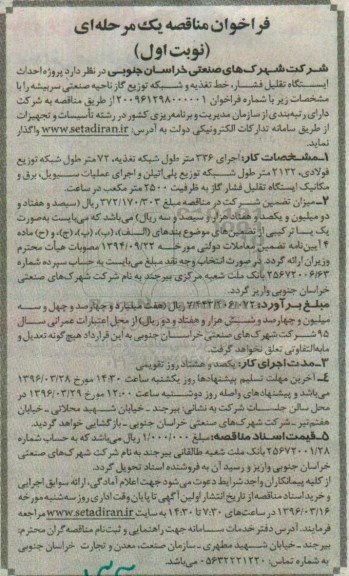 فراخوان مناقصه یک مرحله‌ای
(نوبت اول)
شرکت شهرک‌های صنعتی خراسان جنوبی در نظر دارد پروژه احداث
ایستگاه تقلیل فشار، خط تغذیه و شبکه توزیع گاز ناحیه صنعتی سربیشه را با
مشخصات زیر با شماره فراخوان ۲۰۰۹۶۱۲۹۸۰۰۰۰۰۱ از طریق مناقصه به شرکت
دارای رتبه‌بندی از سازمان مدیریت و برنامه‌ریزی کشور در رشته تأسیسات و تجهیزات
از طریق سامانه تدارکات الکترونیکی دولت به آدرس: www.setadiran.ir واگذار
نماید.
۱ـ مشخصات کار: اجرای ۳۳۶ متر طول شبکه تغذیه، ۷۲ متر طول شبکه توزیع
فولادی، ۲۱۳۲ متر طول شبکه توزیع پلی‌اتیلن و اجرای عملیات سیویل، برق و
مکانیک ایستگاه تقلیل فشار گاز به ظرفیت ۲۵۰۰ متر مکعب در ساعت.
۲ـ میزان تضمین شرکت در مناقصه مبلغ ۳۷۲/۱۷۰/۳۰۳ ریال (سیصد و هفتاد و
دو میلیون و یکصد و هفتاد هزار و سیصد و سه ریال) می‌باشد که می‌بایست به‌صورت
یک یا ترکیبی از تضمین‌های موضوع بندهای (الف)، (ب)، (پ)، (ج)، و (ح) ماده
۴ آیین‌نامه تضمین معاملات دولتی مورخه ۱۳۹۴/۰۹/۲۲ مصوبات هیأت محترم
وزیران ارائه گردد. در صورت انتخاب وجه نقد مبلغ می‌بایست به حساب سپرده شماره
۲۵۶۷۲۰۰۶/۶۳ بانک ملت شعبه مرکزی بیرجند به نام شرکت شهرک‌های صنعتی
خراسان جنوبی واریز گردد.
مبلغ برآورد: ۷/۴۴۳/۴۰۶/۰۷۲ ریال (هفت میلیارد و چهارصد و چهل و سه
میلیون و چهارصد و شش هزار و هفتاد و دو ریال) از محل اعتبارات عمرانی سال
۹۵ شرکت شهرک‌های صنعتی خراسان جنوبی به این قرارداد هیچ‌گونه تعدیل و
مابه‌التفاوتی تعلق نخواهد گرفت.
۳ـ مدت اجرای کار: یکصد و هشتاد روز تقویمی
۴ـ آخرین مهلت تسلیم پیشنهادها روز یکشنبه ساعت ۱۴:۳۰ مورخ ۱۳۹۶/۰۳/۲۸
می‌باشد و پیشنهادهای واصله روز دوشنبه ساعت ۱۲:۰۰ مورخ ۱۳۹۶/۰۳/۲۹ در
محل سالن جلسات شرکت به نشانی: بیرجند ـ خیابان شهید محلاتی ـ خیابان
هفتم‌تیر ـ شرکت شهرک‌های صنعتی خراسان جنوبی ـ بازگشایی خواهد گردید.
۵ـ قیمت اسناد مناقصه: مبلغ ۱/۰۰۰/۰۰۰ ریال می‌باشد که به حساب شماره
۲۵۶۷۲۰۰۱/۲۸ بانک ملت شعبه طالقانی بیرجند به نام شرکت شهرک‌های صنعتی
خراسان جنوبی واریز و رسید آن به فروشنده اسناد تحویل گردد.
از کلیه پیمانکاران واجد شرایط دعوت می‌شود جهت اعلام آمادگی، ارائه سوابق اجرایی
و خرید اسناد مناقصه از تاریخ انتشار اولین آگهی تا پایان وقت اداری روز سه‌شنبه مورخه
۱۳۹۶/۰۳/۱۶ در ساعت‌های ۷:۳۰ تا ۱۴:۳۰ به سایت www.setadiran.ir مراجعه
فرمایند. آدرس دفتر خدمات سامانه جهت راهنمایی و ثبت‌نام مناقصه‌گران محترم:
بیرجند ـ خیابان شهید مطهری ـ سازمان صنعت، معدن و تجارت خراسان جنوبی
به شماره تماس: ۰۵۶۳۲۲۲۱۲۲۰ می‌باشد.